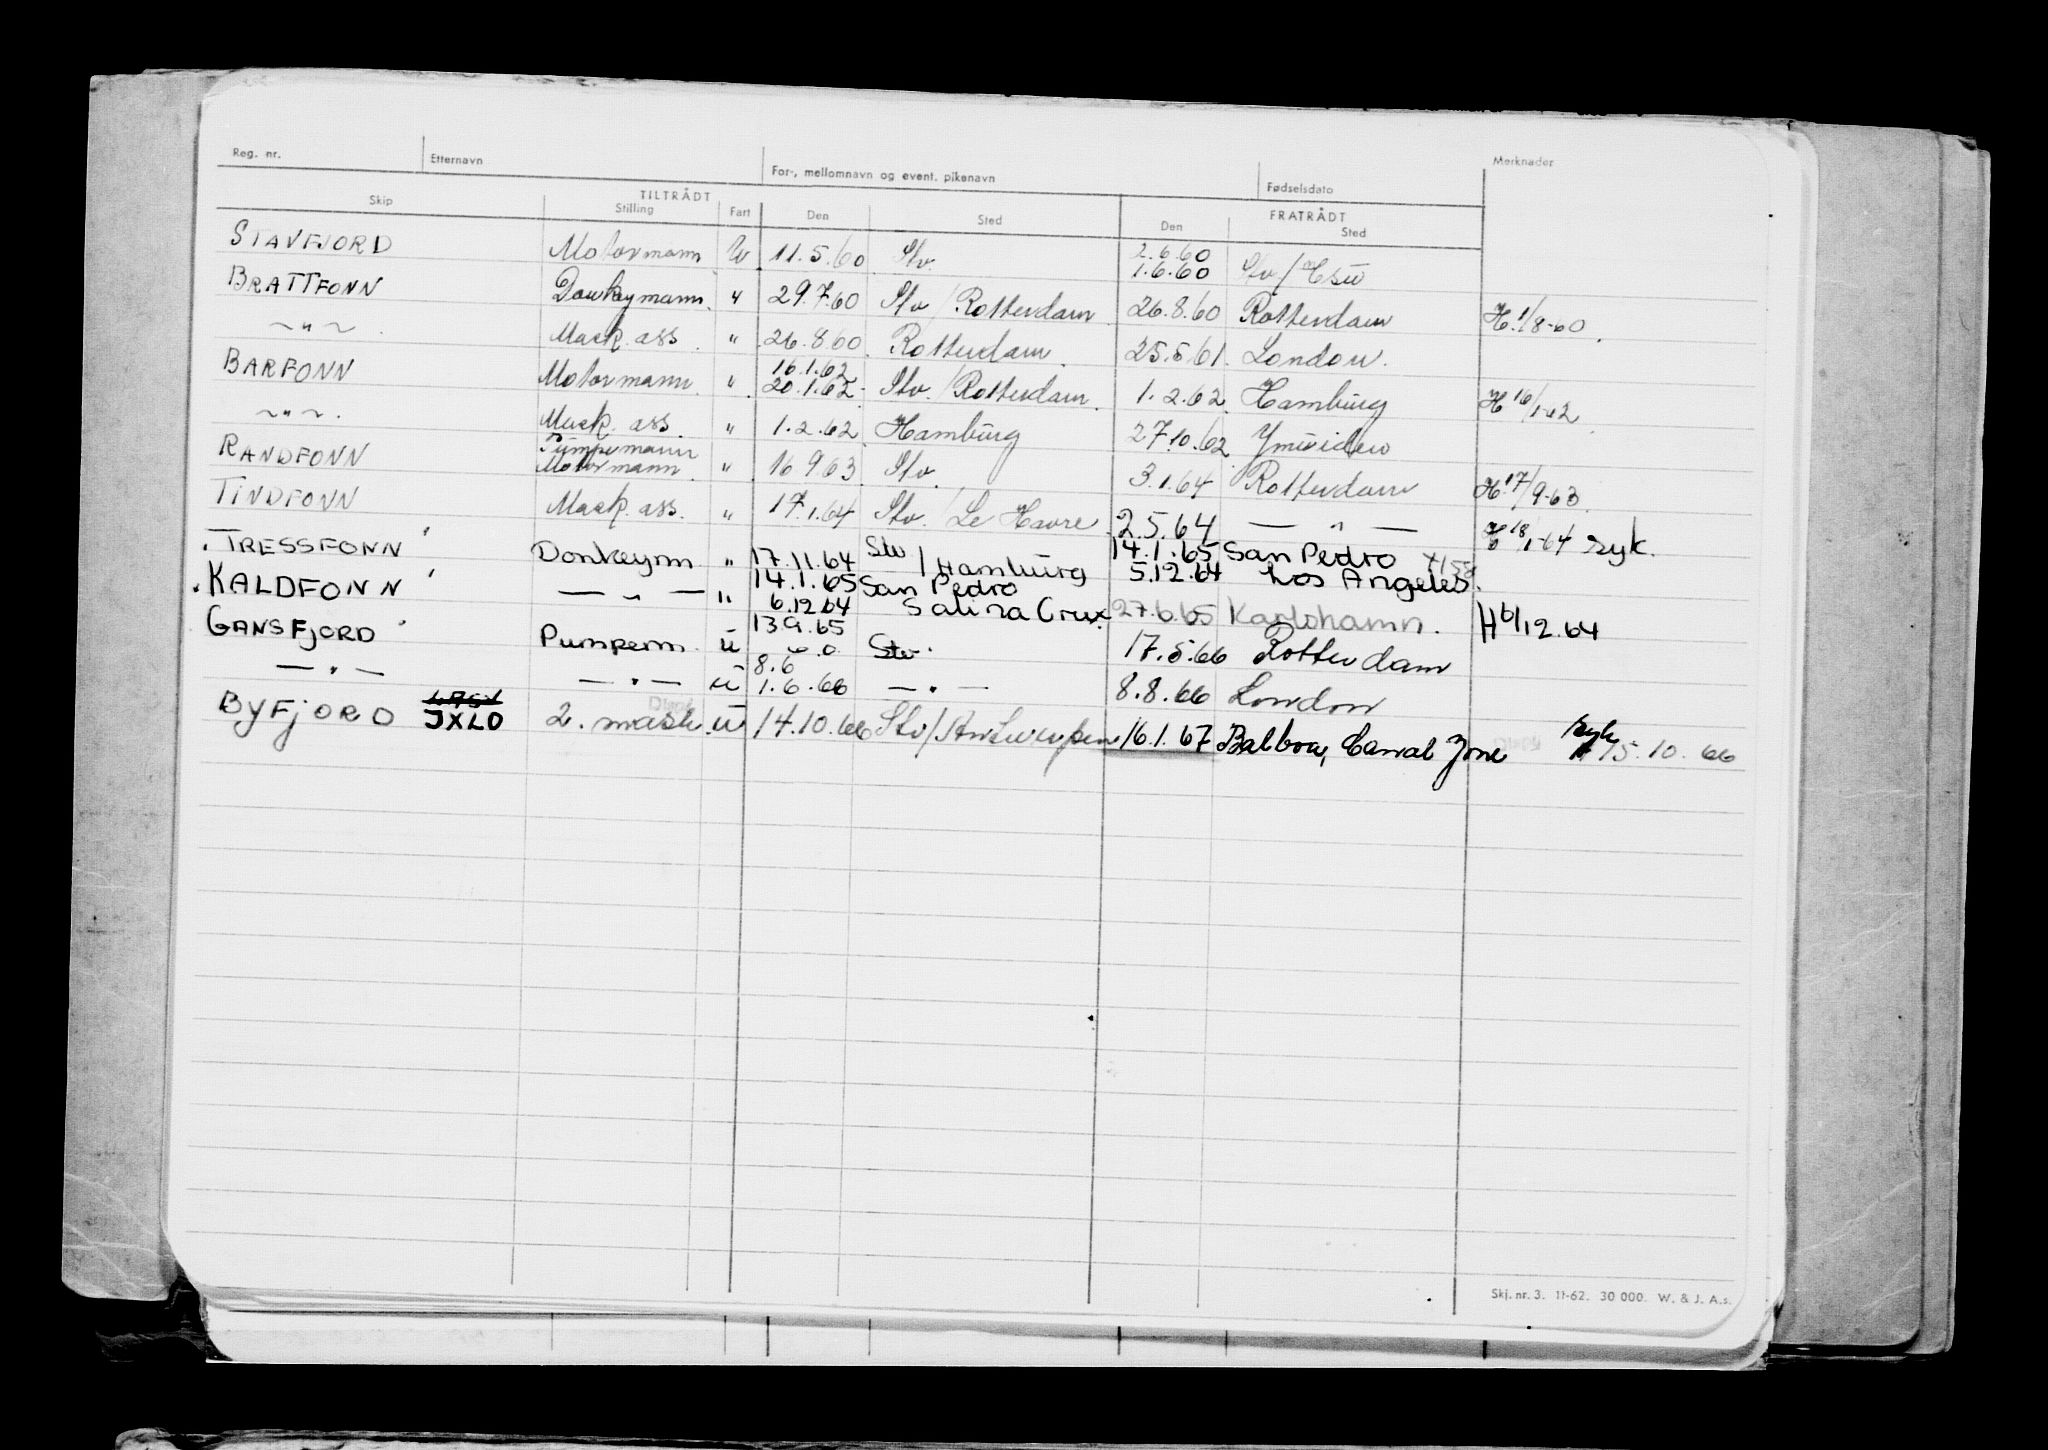 Reg. nr. Etternavn For-, mellomnavn og event. pikenavn Fødselsdato Merknader
TILTRÅDT FRATRÅDT
Skip Stilling Fart Den Sted Den Sted
STAVFJORD Motormann U 11.5.60 Stv. 2.6.60 1.6.60 Stv./
BRATTFONN Donkeymann " 29.7.60 Stv/Rotterdam 26.8.60 Rotterdam H.1/8-60
~"~ Mask. ass " 26.8.60 Rotterdam 25.5.61 London.
BARFONN Motormann " 16.1.62 20.1.62 Stv./Rotterdam 1.2.62 Hamburg H 16/1-62
~"~. Mask. ass. " 1.2.62 Hamburg 27.10.62 Ymuiden
RANDFONN Pumpemann Motormann " 16 9.63 Stv. 3.1.64 Rotterdam H.17/9-63
TINDFONN Mask. ass. " 17.1.64 Stv./Le Havre 2.5.64 — " — 18/1-64 syk.
TRESSFONN Donkeym " 17.11.64 Stv/Hamburg 14.1.65 San Pedro 5.12.64 Los Angeles
KALDFONN — " — " 14.1.65 San Pedro 6.12.64 Salina Crux 27.6.65 Karlshamn. H 6/12.64
GANSFJORD Pumpem. U 13.9.65 Stv. 17.5.66 Rotterdam
— " — — " — U 8.6 1.6.66 — " — 8.8.66 London
BYFJORD JXLO 2. mask. U 14.10.66 Stv/Antwerpen 16.1.67 Balboa, Canal Zone syk 15.10.66
Skj. nr. 3. 11-62. 30 000. W. & J. A.s.